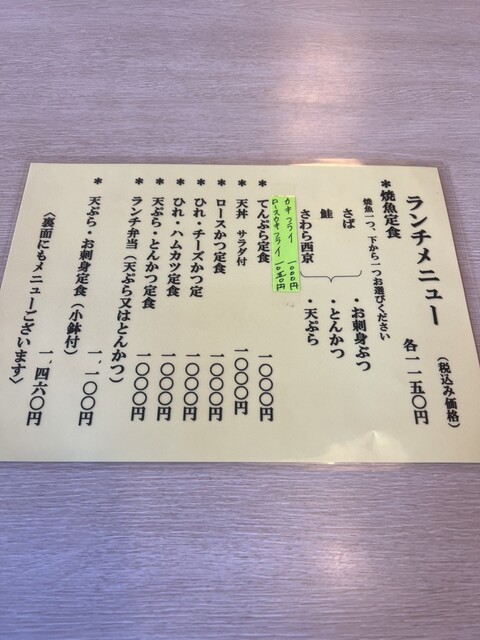 ランチメニュー
(税込み価格)
*焼魚定食 各一一五〇円
焼魚一つ、下から一つお選びください
さば
鮭
さわら西京
・お刺身ぶつ
・とんかつ
・天ぷら
カキフライ 1000円
ロースカキフライ 1050円
* てんぷら定食 一〇〇〇円
* 天丼 サラダ付 一〇〇〇円
* ロースかつ定食 一〇〇〇円
* ひれ・チーズかつ定 一〇〇〇円
* ひれ・ハムカツ定食 一〇〇〇円
* 天ぷら・とんかつ定食 一〇〇〇円
* ランチ弁当(天ぷら又はとんかつ) 一、一〇〇円
* 天ぷら・お刺身定食(小鉢付) 一、四六〇円
〈裏面にもメニューございます〉